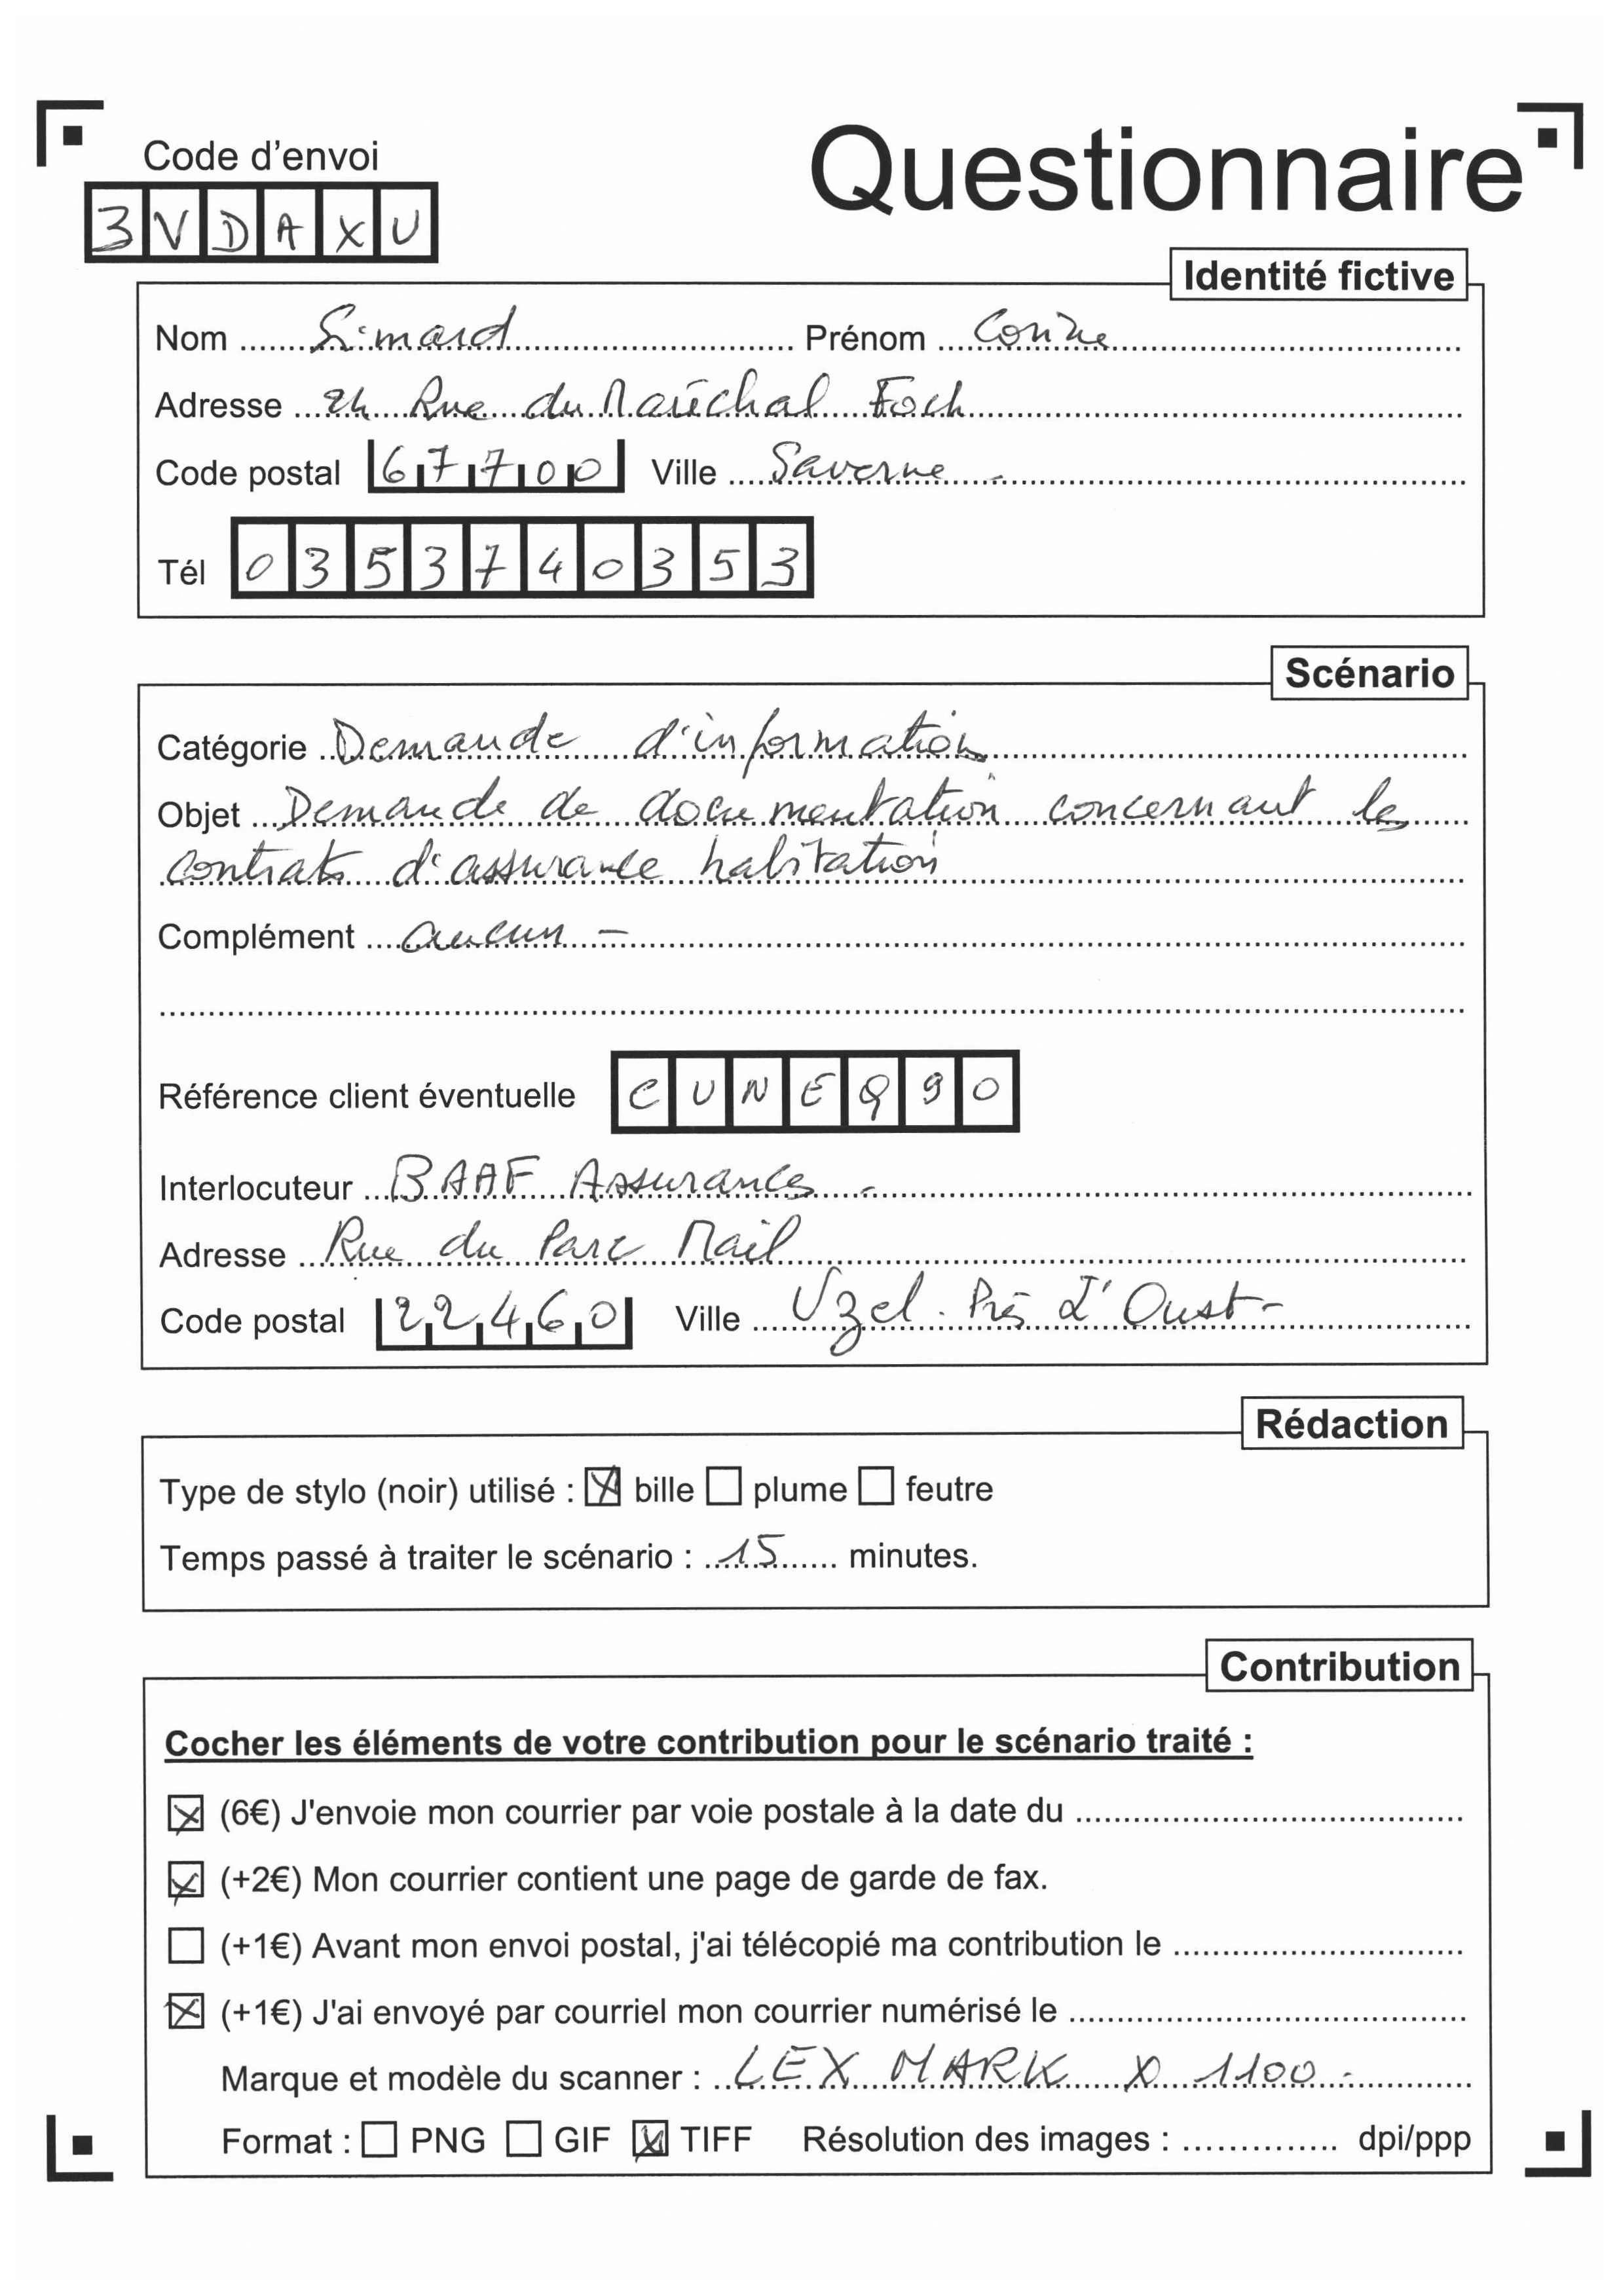 Questionnaire
Code d'envoi
3VDAXU
Identité fictive
Nom Simard Prénom
Adresse 24 Rue du Maréchal Foch
Code postal 67700 Ville Saverne -
Tél 0353740353
Scénario
Catégorie Demande d'information
Objet Demande de documentation concernant les
contrats d'assurance habitation
Complément aucun -
Référence client éventuelle CUNEQ90
Interlocuteur BAAF Assurances -
Adresse Rue du Parc Mail
Code postal 22460 Ville Uzel. Près L'Oust -
Rédaction
Type de stylo (noir) utilisé : bille plume feutre
Temps passé à traiter le scénario : 15 minutes.
Contribution
Cocher les éléments de votre contribution pour le scénario traité :
(6€) J'envoie mon courrier par voie postale à la date du
(+2€) Mon courrier contient une page de garde de fax.
(+1€) Avant mon envoi postal, j'ai télécopié ma contribution le
(+1€) J'ai envoyé par courriel mon courrier numérisé le
Marque et modèle du scanner : LEX MARK X 1100 -
Format : PNG GIF TIFF Résolution des images : dpi/ppp